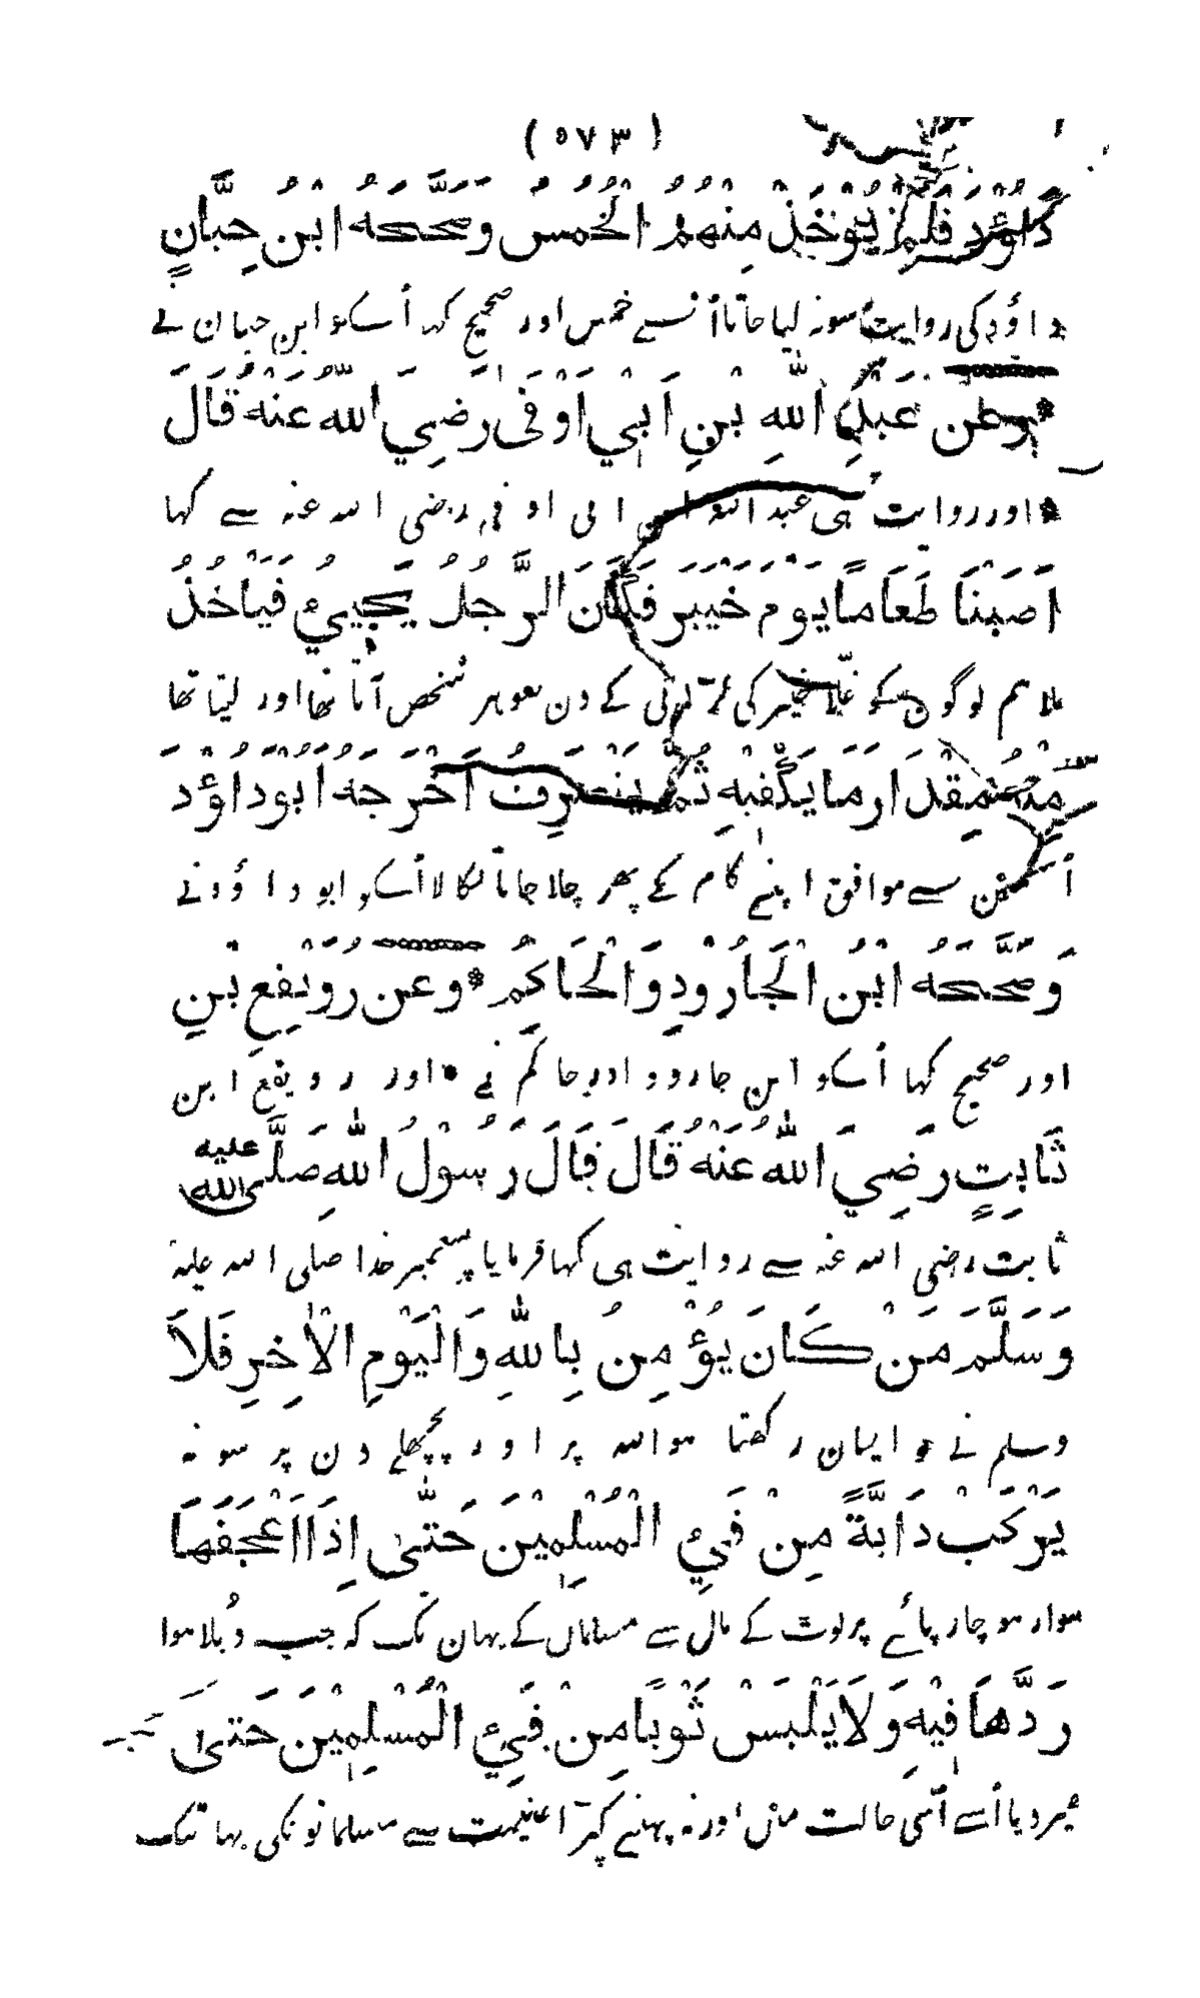 (٥٧٣)
دَاوُدَ فَلَمْ يُؤْخَذْ مِنْهُمُ الْخُمُسُ وَصَحَّحَهُ ابْنُ حِبَّانٍ
داؤد کی روایت سونہ لیا جاتا اُنسے خمس اور صحیح کہا اُسکو ابن حبان نے
* وَعَنْ عَبْدِ اللهِ بْنِ اَبِيْ اَوْفٰى رَضِيَ اللهُ عَنْهُ قَالَ
* اور روایت ہی عبد اللہ ابی اوفی رضی اللہ عنہ سے کہا
اَصَبْنَا طَعَامًا يَوْمَ خَيْبَرَ فَكَانَ الرَّجُلُ يَجِيْئُ فَيَاْخُذُ
ملا ہم لوگوں کو غلّا خیبر کی لڑائی کے دن سو ہر شخص آتا تھا اور لیتا تھا
مِنْهُ مِقْدَارَ مَا يَكْفِيْهِ ثُمَّ يَنْصَرِفُ اَخْرَجَهُ اَبُوْدَاوٗدَ
سے موافق اپنے کام کے پھر چلا جاتا نکالا اُسکو ابو داؤد نے
وَصَحَّحَهُ ابْنُ الْجَارُوْدِ وَالْحَاكِمُ * وَعَنْ رُوَيْفِعِ بْنِ
اور صحیح کہا اُسکو ابن جارود اور حاکم نے * اور رویفع ابن
ثَابِتٍ رَضِيَ اللهُ عَنْهُ قَالَ قَالَ رَسُوْلُ اللهِ صَلَّى اللهُ عليه
ثابت رضی اللہ عنہ سے روایت ہی کہا فرمایا پیغمبر خدا صلی اللہ علیہ
وَسَلَّمَ مَنْ كَانَ يُؤْمِنُ بِاللهِ وَالْيَوْمِ الْاٰخِرِ فَلاَ
وسلم نے ایمان رکھتا ہو اللہ پر اور پچھلے دن پر سو نہ
يَرْكَبْ دَابَّةً مِنْ فَيْءِ الْمُسْلِمِيْنَ حَتّٰى اِذَا اَعْجَفَهَا
سوار ہو چارپائے پر لوٹ کے مال سے مسلماں کے یہان تک کہ جب دُبلا ہوا
رَدَّهَا فِيْهِ وَلَا يَلْبَسْ ثَوْبًا مِنْ فَيْءِ الْمُسْلِمِيْنَ حَتىَّ
پھیر دیا اُسے اُسی حالت میں اور نہ پہنے کپڑا غنیمت سے مسلمانونکی یہاتک